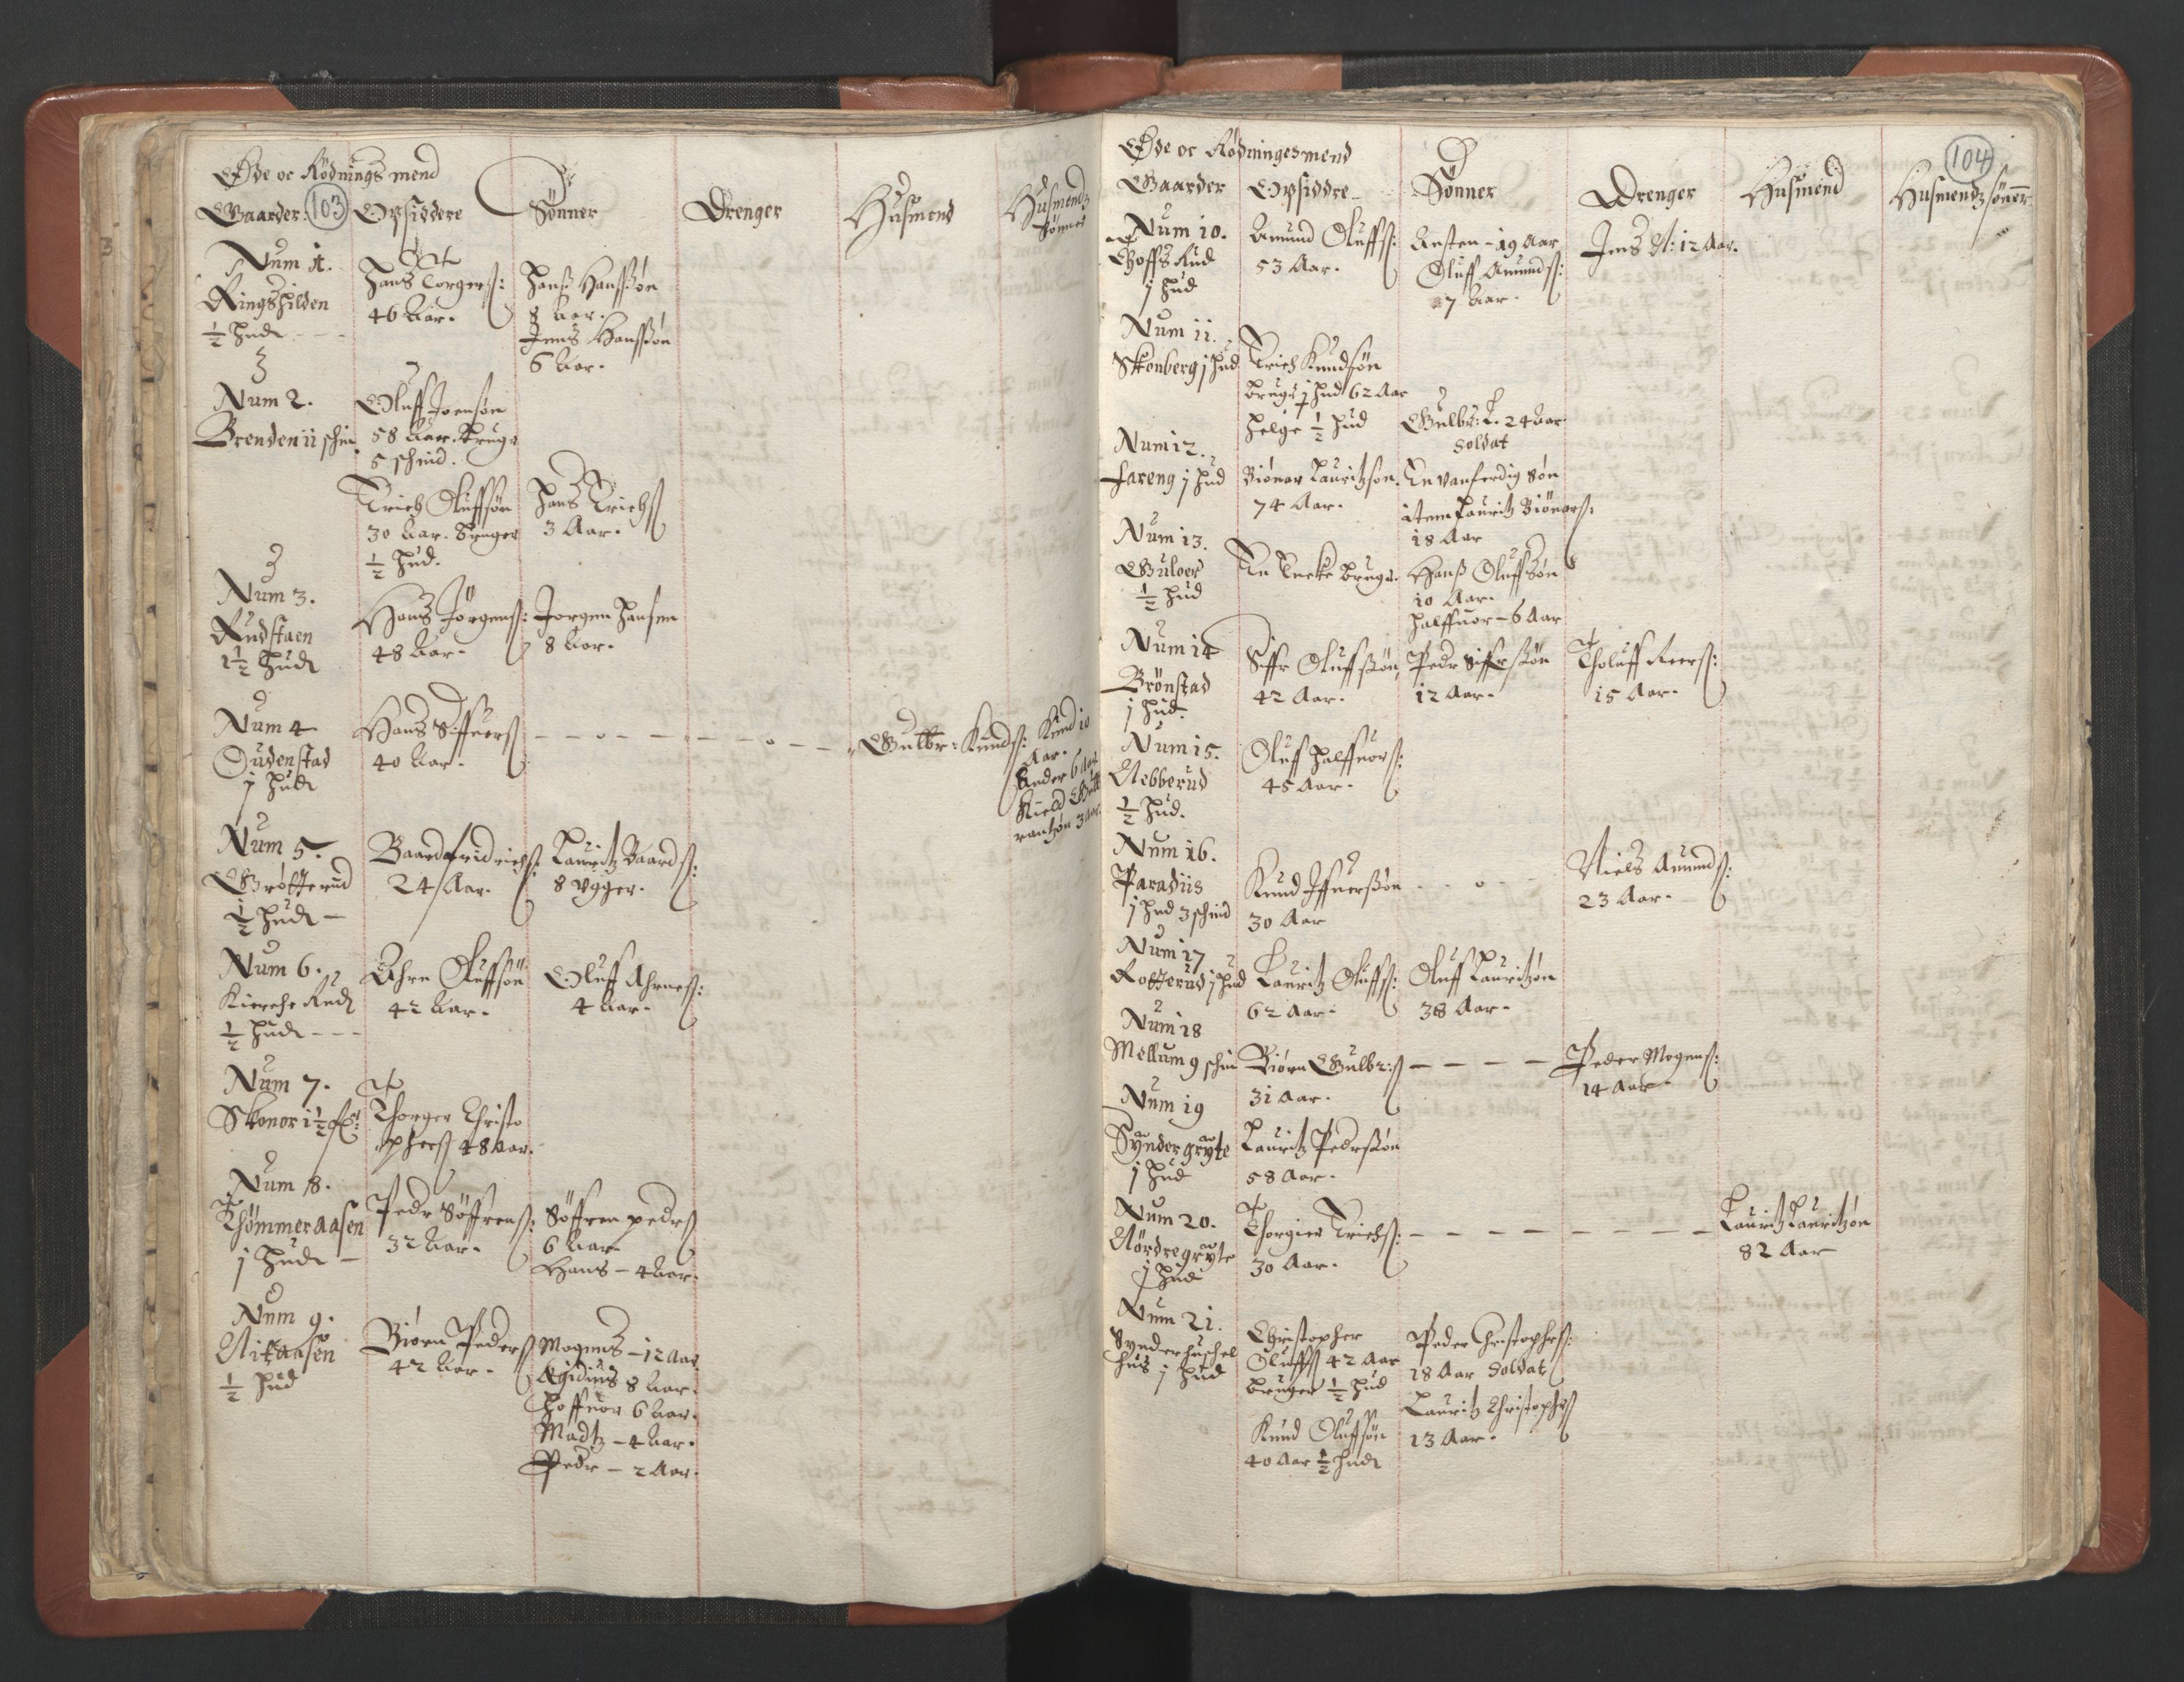 Øde oc Rödnings mend
Gaarder: 103 Opsiddere Sönner Drenger Husmend Husmendz sönner
Num 1.
Ringshilden
½ hud
Hans Torgers:
46 Aar.
Hans Hanssön
8 Aar.
Jens Hanssön
6 Aar.
Num 2.
Brenden 11 schin
Oluff Joensön
58 Aar. bruger
5 schind.
Erich Oluffsön
30 Aar. bruger
½ hud.
Hans Erichs
3 Aar.
Num 3.
Rudstaen
1½ hud
Hans Jörgens:
48 Aar.
Jorgen Hansen
8 Aar.
Num 4
Oudenstad
j hud
Hans Siffuers
40 Aar.
Gulbr: Knuds:
Knud 10
Aar.
Ander 6 Aar
Kield
3 Aar.
Num 5.
Grötterud
½ hud
Baard fridrichs:
24 Aar.
Lauritz Baards:
8 Ugger.
Num 6.
Kierche Rud
½ hud
Ahrn Oluffsön
42 Aar.
Oluff Ahrnes:
4 Aar.
Num 7.
Skonor 1½
Thorger Christo
phers 48 Aar.
Num 8.
Thömmeraasen
j hud
Pedr Söffrens:
32 Aar.
Söffren pedrs
6 Aar
Hans - 4 Aar.
Num 9.
Nitaasen
½ hud
Biörn Peders
42 Aar.
Mogens - 12 Aar
Ægidius 8 Aar.
Hoffuor 6 Aar.
Madtz - 4 Aar.
Pedr - 2 Aar.
104
Øde oc Rödningesmend
Gaarder Opsiddre Sönner Drenger Husmend Husmendz söner
Num 10.
Goffs Rud
j hud
Amund Oluffs:
53 Aar.
Aesten - 19 Aar
Oluff Amunds:
17 Aar.
Jens N: 12 Aar.
Num 11.
Skonberg j hud
Erich Knudsön
brugr j hud 62 Aar
Helge ½ hud
Gulbr: L. 24 Aar
Soldat
Num 12.
fareng j hud
Biönar Lauritzsön.
74 Aar.
En vanferdig Sön
item Lauritz Biönars:
18 Aar
Num 13.
Guloer
½ hud
En Encke bruger.
Hans Oluffsön
10 Aar.
Halffuor - 6 Aar
Num 14
Brönstad
j hud.
Siffr Oluffssön
42 Aar.
Pedr Siffrssön
12 Aar.
Tholuff Reers:
15 Aar.
Num 15.
Nebberud
½ hud.
Oluf Halffuors:
45 Aar.
Num 16.
Paradiis
j hud 3 schind
Knud Iffuerssön
30 Aar
Niels Amunds:
23 Aar.
Num 17
Rotterud j hud
Lauritz Oluffs:
62 Aar.
Oluff Lauritzön
38 Aar.
Num 18
Mellum 9 schin
Biörn Gulbr:s
31 Aar.
Peder Mogens:
14 Aar.
Num 19
Synder gryte
j hud
Lauritz Pedrssön
58 Aar.
Num 20.
Nördre gryte
j hud
Thorgier Erichs:
30 Aar.
Lauritz Lauritzön
82 Aar
Num 21.
Synderhuschel
hus j hud
Christopher
Oluffs 42 Aar
bruger ½ hud
Knud Oluffsön
40 Aar ½ hud
Peder Christophrs:
18 Aar Soldat
Lauritz Christophrs
13 Aar.